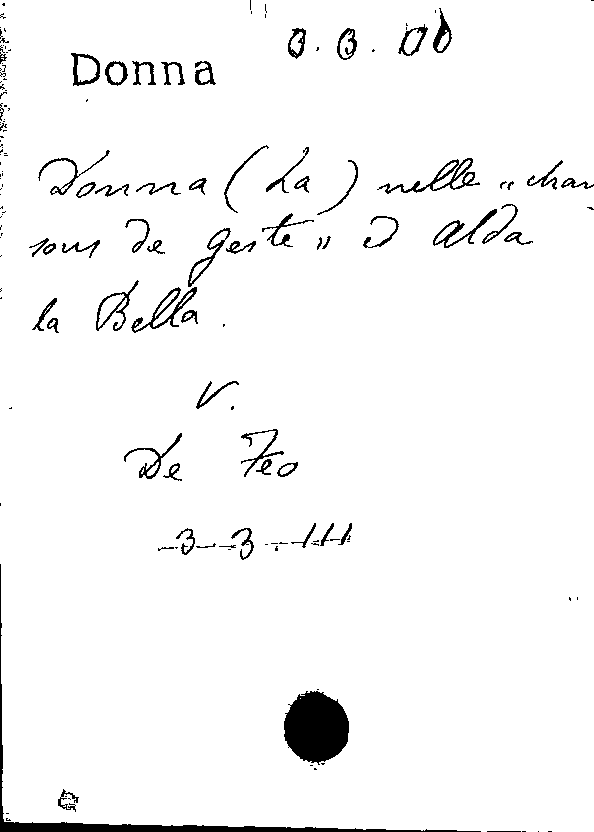 Donna
Donna (La) nelle „chan
sons de geste„ ed Alda
la Bella.
V.
De Feo
3-3-111